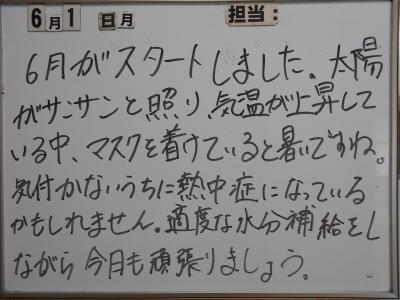 6月1日月 担当:
6月がスタートしました。太陽
がサンサンと照り、気温が上昇して
いる中、マスクを着けていると暑いですね。
気付かないうちに熱中症になっている
かもしれません。適度な水分補給をし
ながら今月も頑張りましょう。